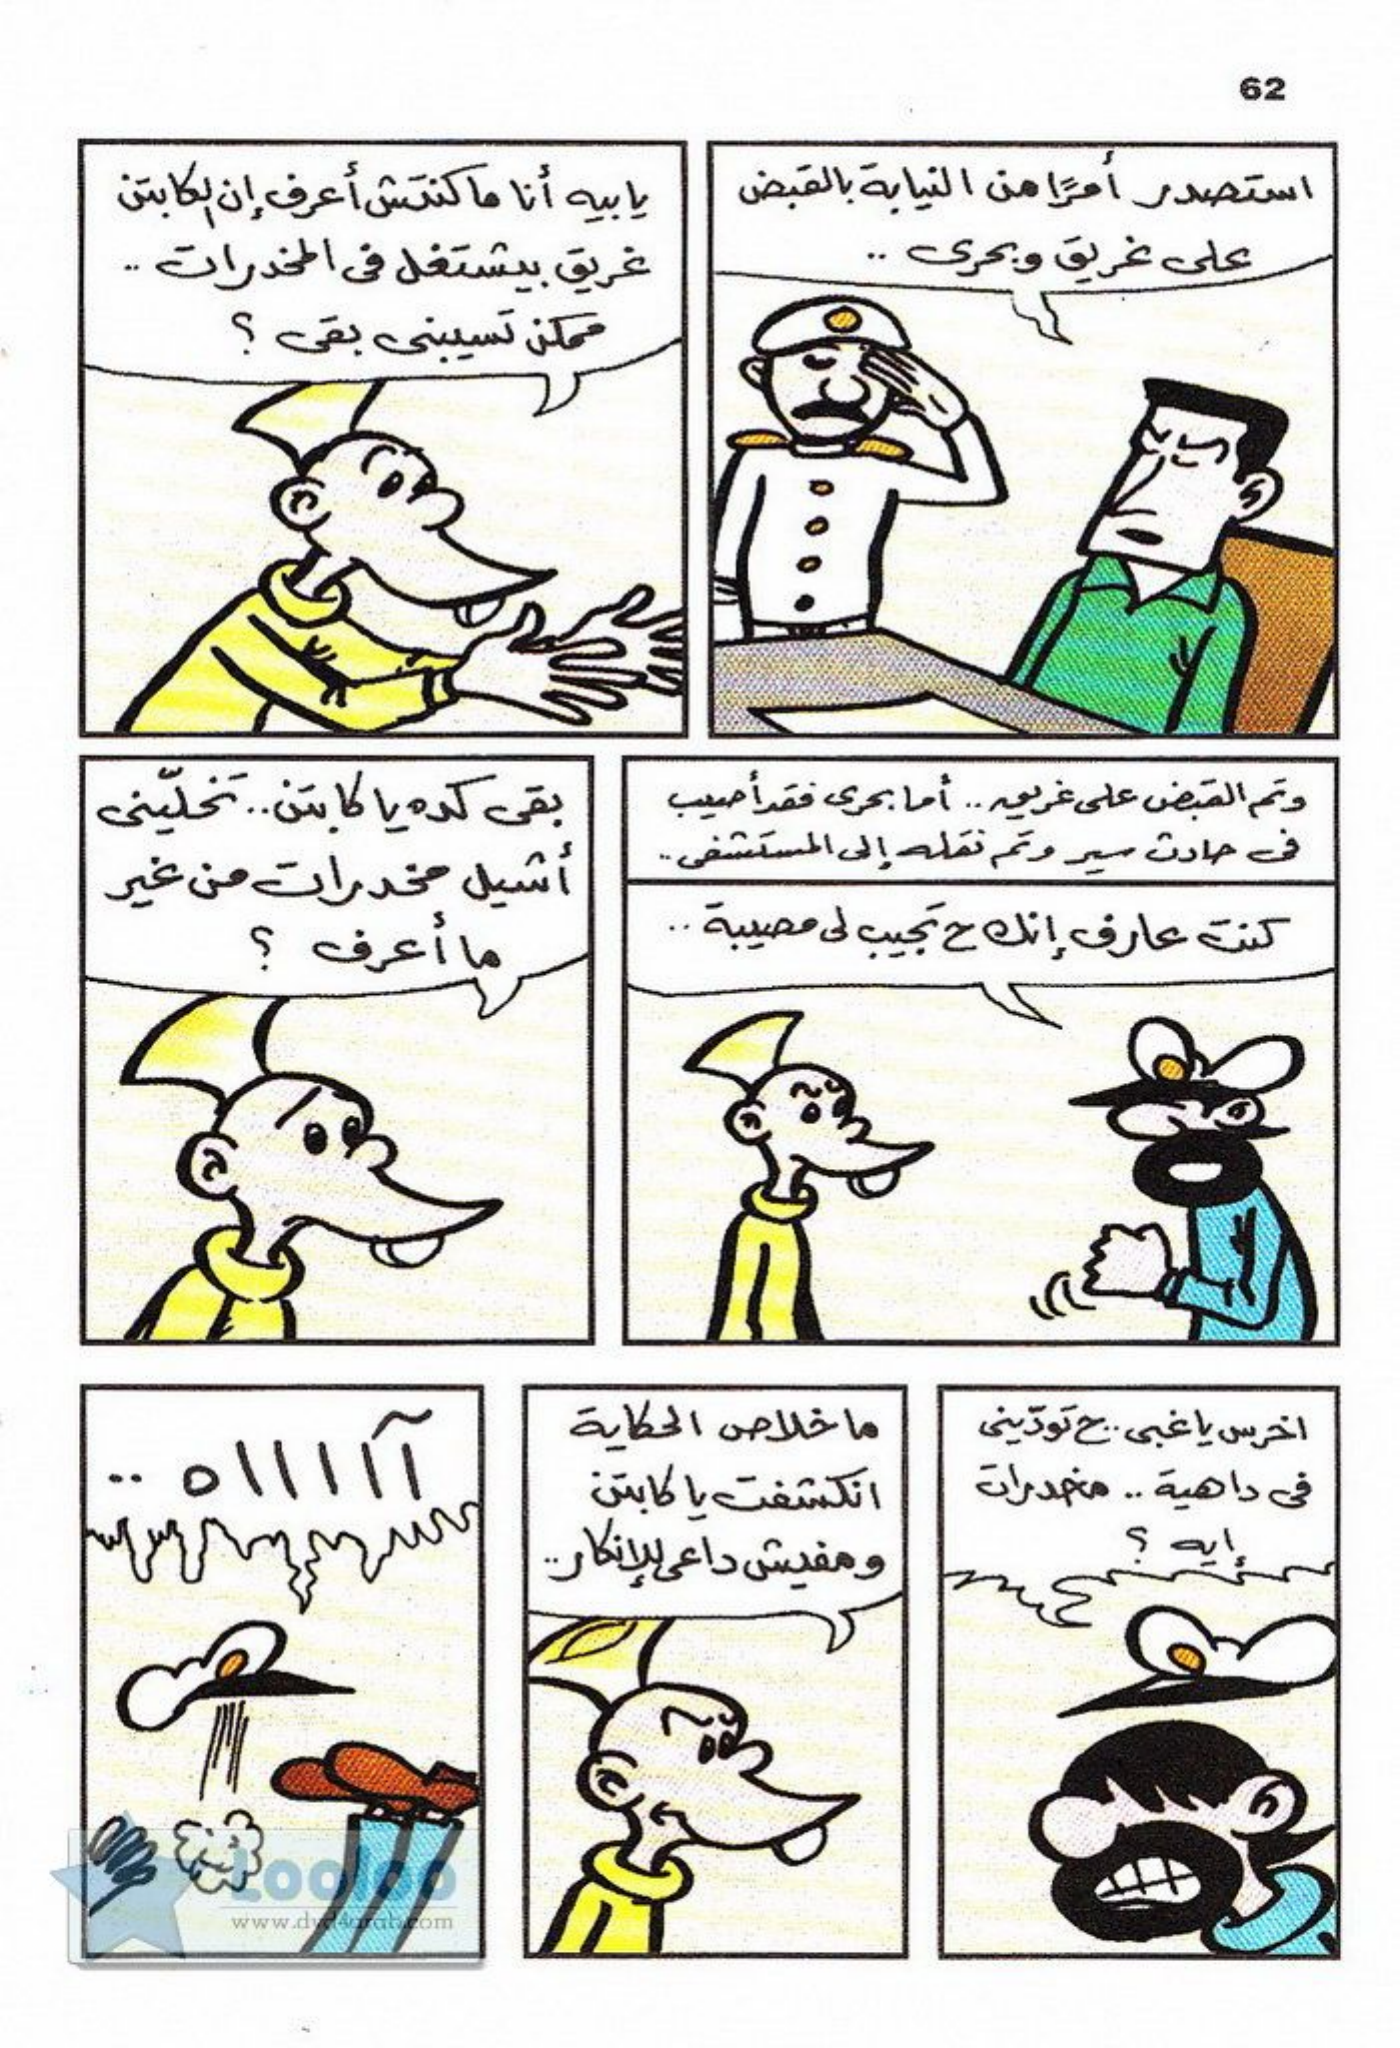 62
استصدر أمرًا من النيابة بالقبض
على غريق وبحرى ..
يا بيه أنا ما كنتش أعرف إن الكابتن
غريق بيشتغل فى المخدرات ..
ممكن تسيبنى بقى ؟
وتم القبض على غريق .. أما بحرى فقد أصيب
فى حادث سير وتم نقله إلى المستشفى ..
كنت عارف إنك ح تجيب لى مصيبة ..
بقى كده يا كابتن .. تخلّينى
أشيل مخدرات من غير
ما أعرف ؟
اخرس يا غبى .. ح تودّينى
فى داهية .. مخدرات
إيه ؟
ما خلاص الحكاية
انكشفت يا كابتن
ومفيش داعى للإنكار ..
آاااااه ..
Looloo
www.dvd4arab.com